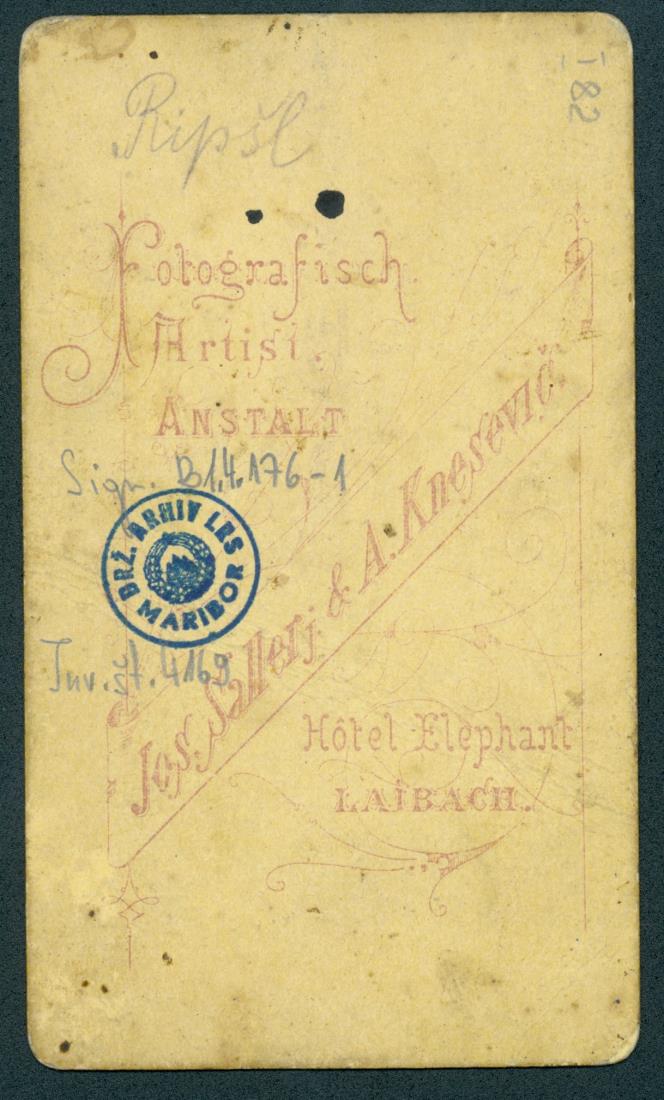 Ripšl
182
Fotografisch.
Artist.
ANSTALT
Sign. B1.4.176-1
DRŽ. ARHIV LRS
MARIBOR
Inv. št. 4169
Jos. Sallerj & A. Knesevič.
Hôtel Elephant
LAIBACH.